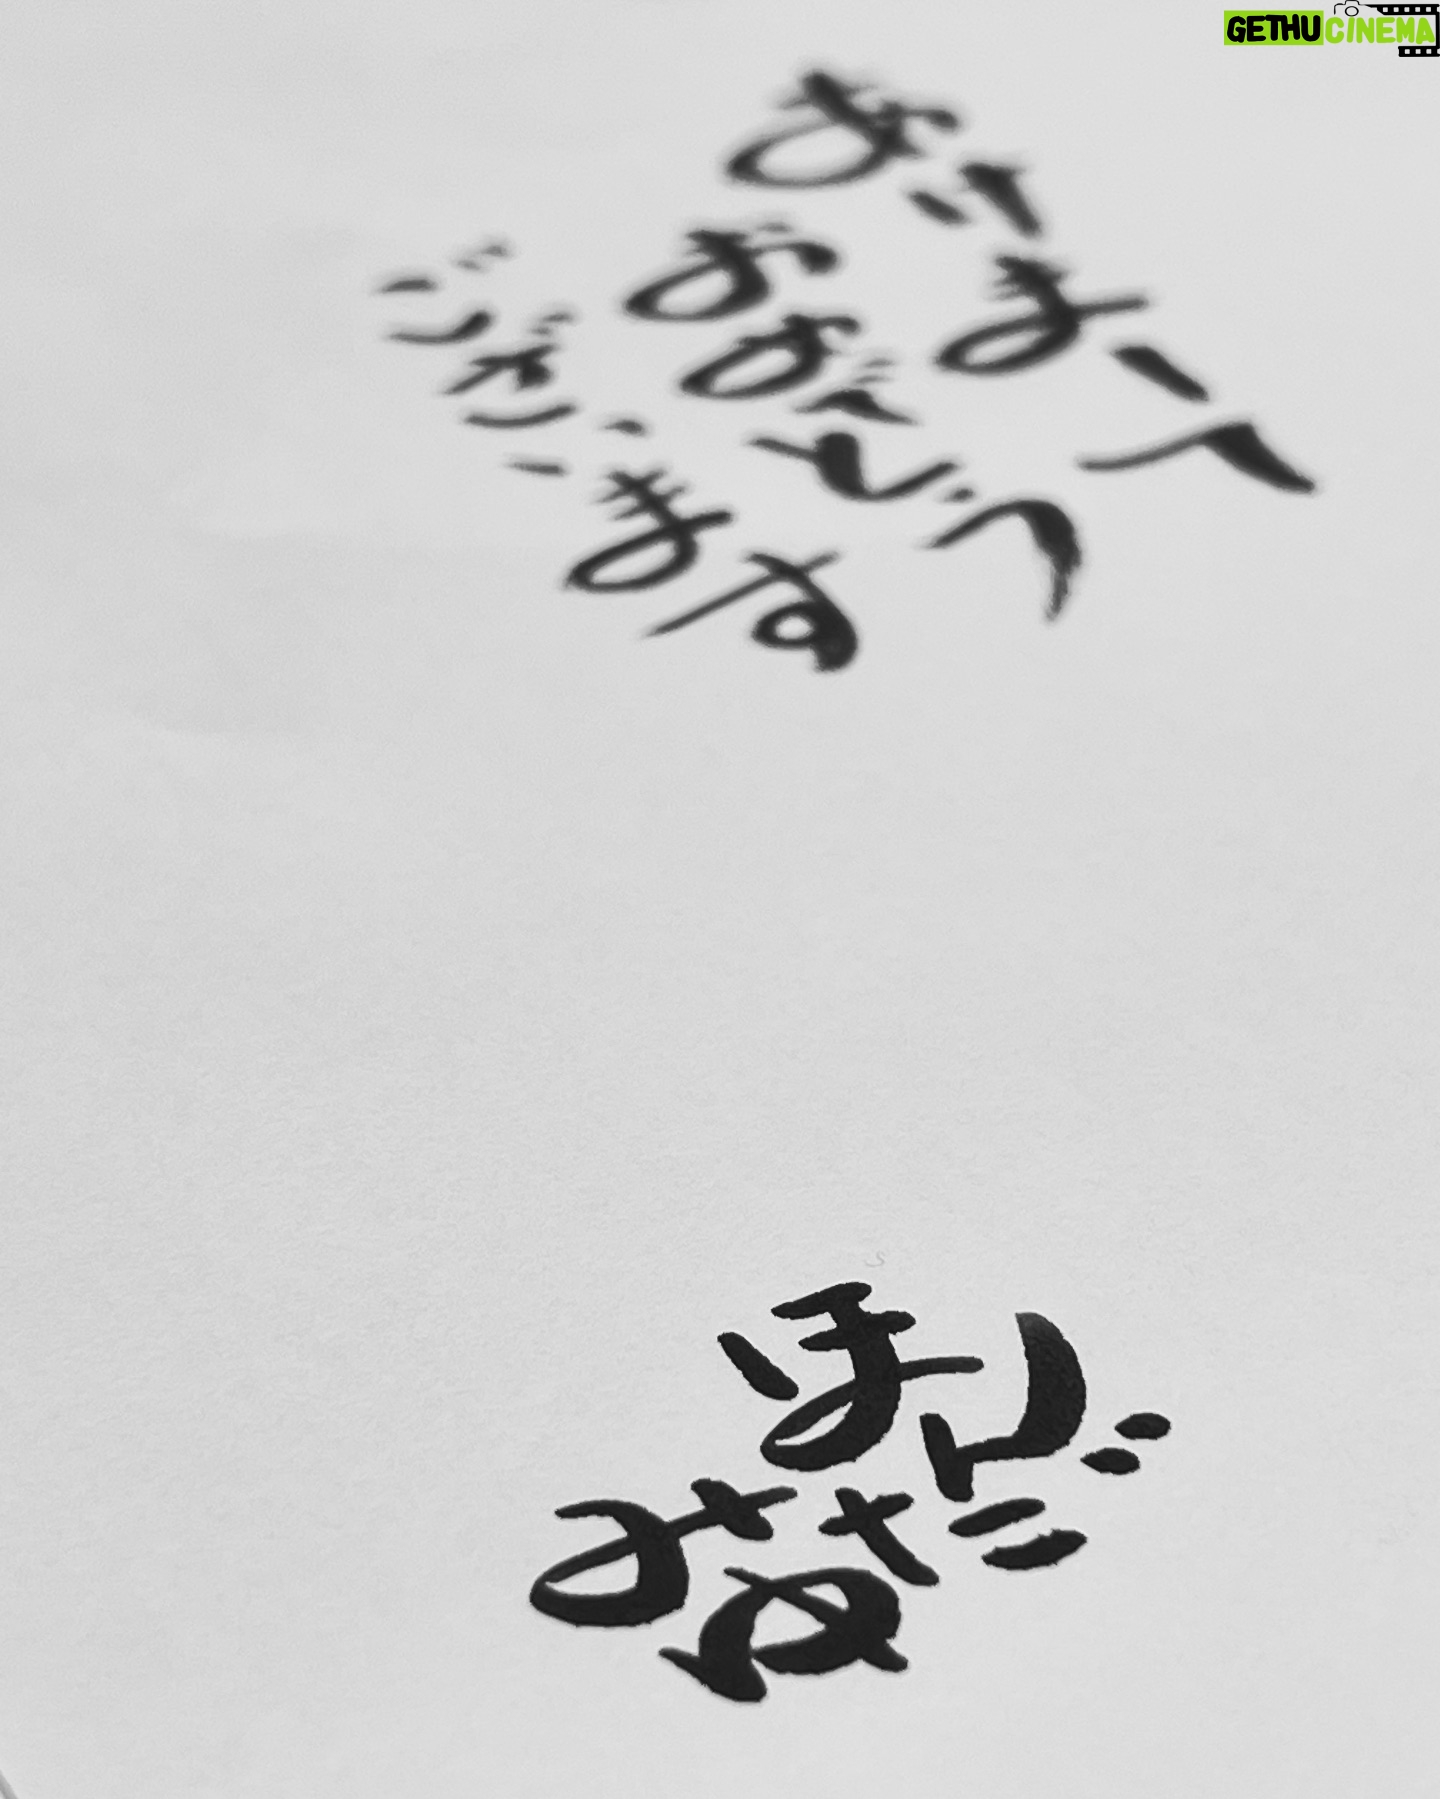 GETHUCINEMA
あけまして
おめでとう
ございます
ほんだ
みゆ